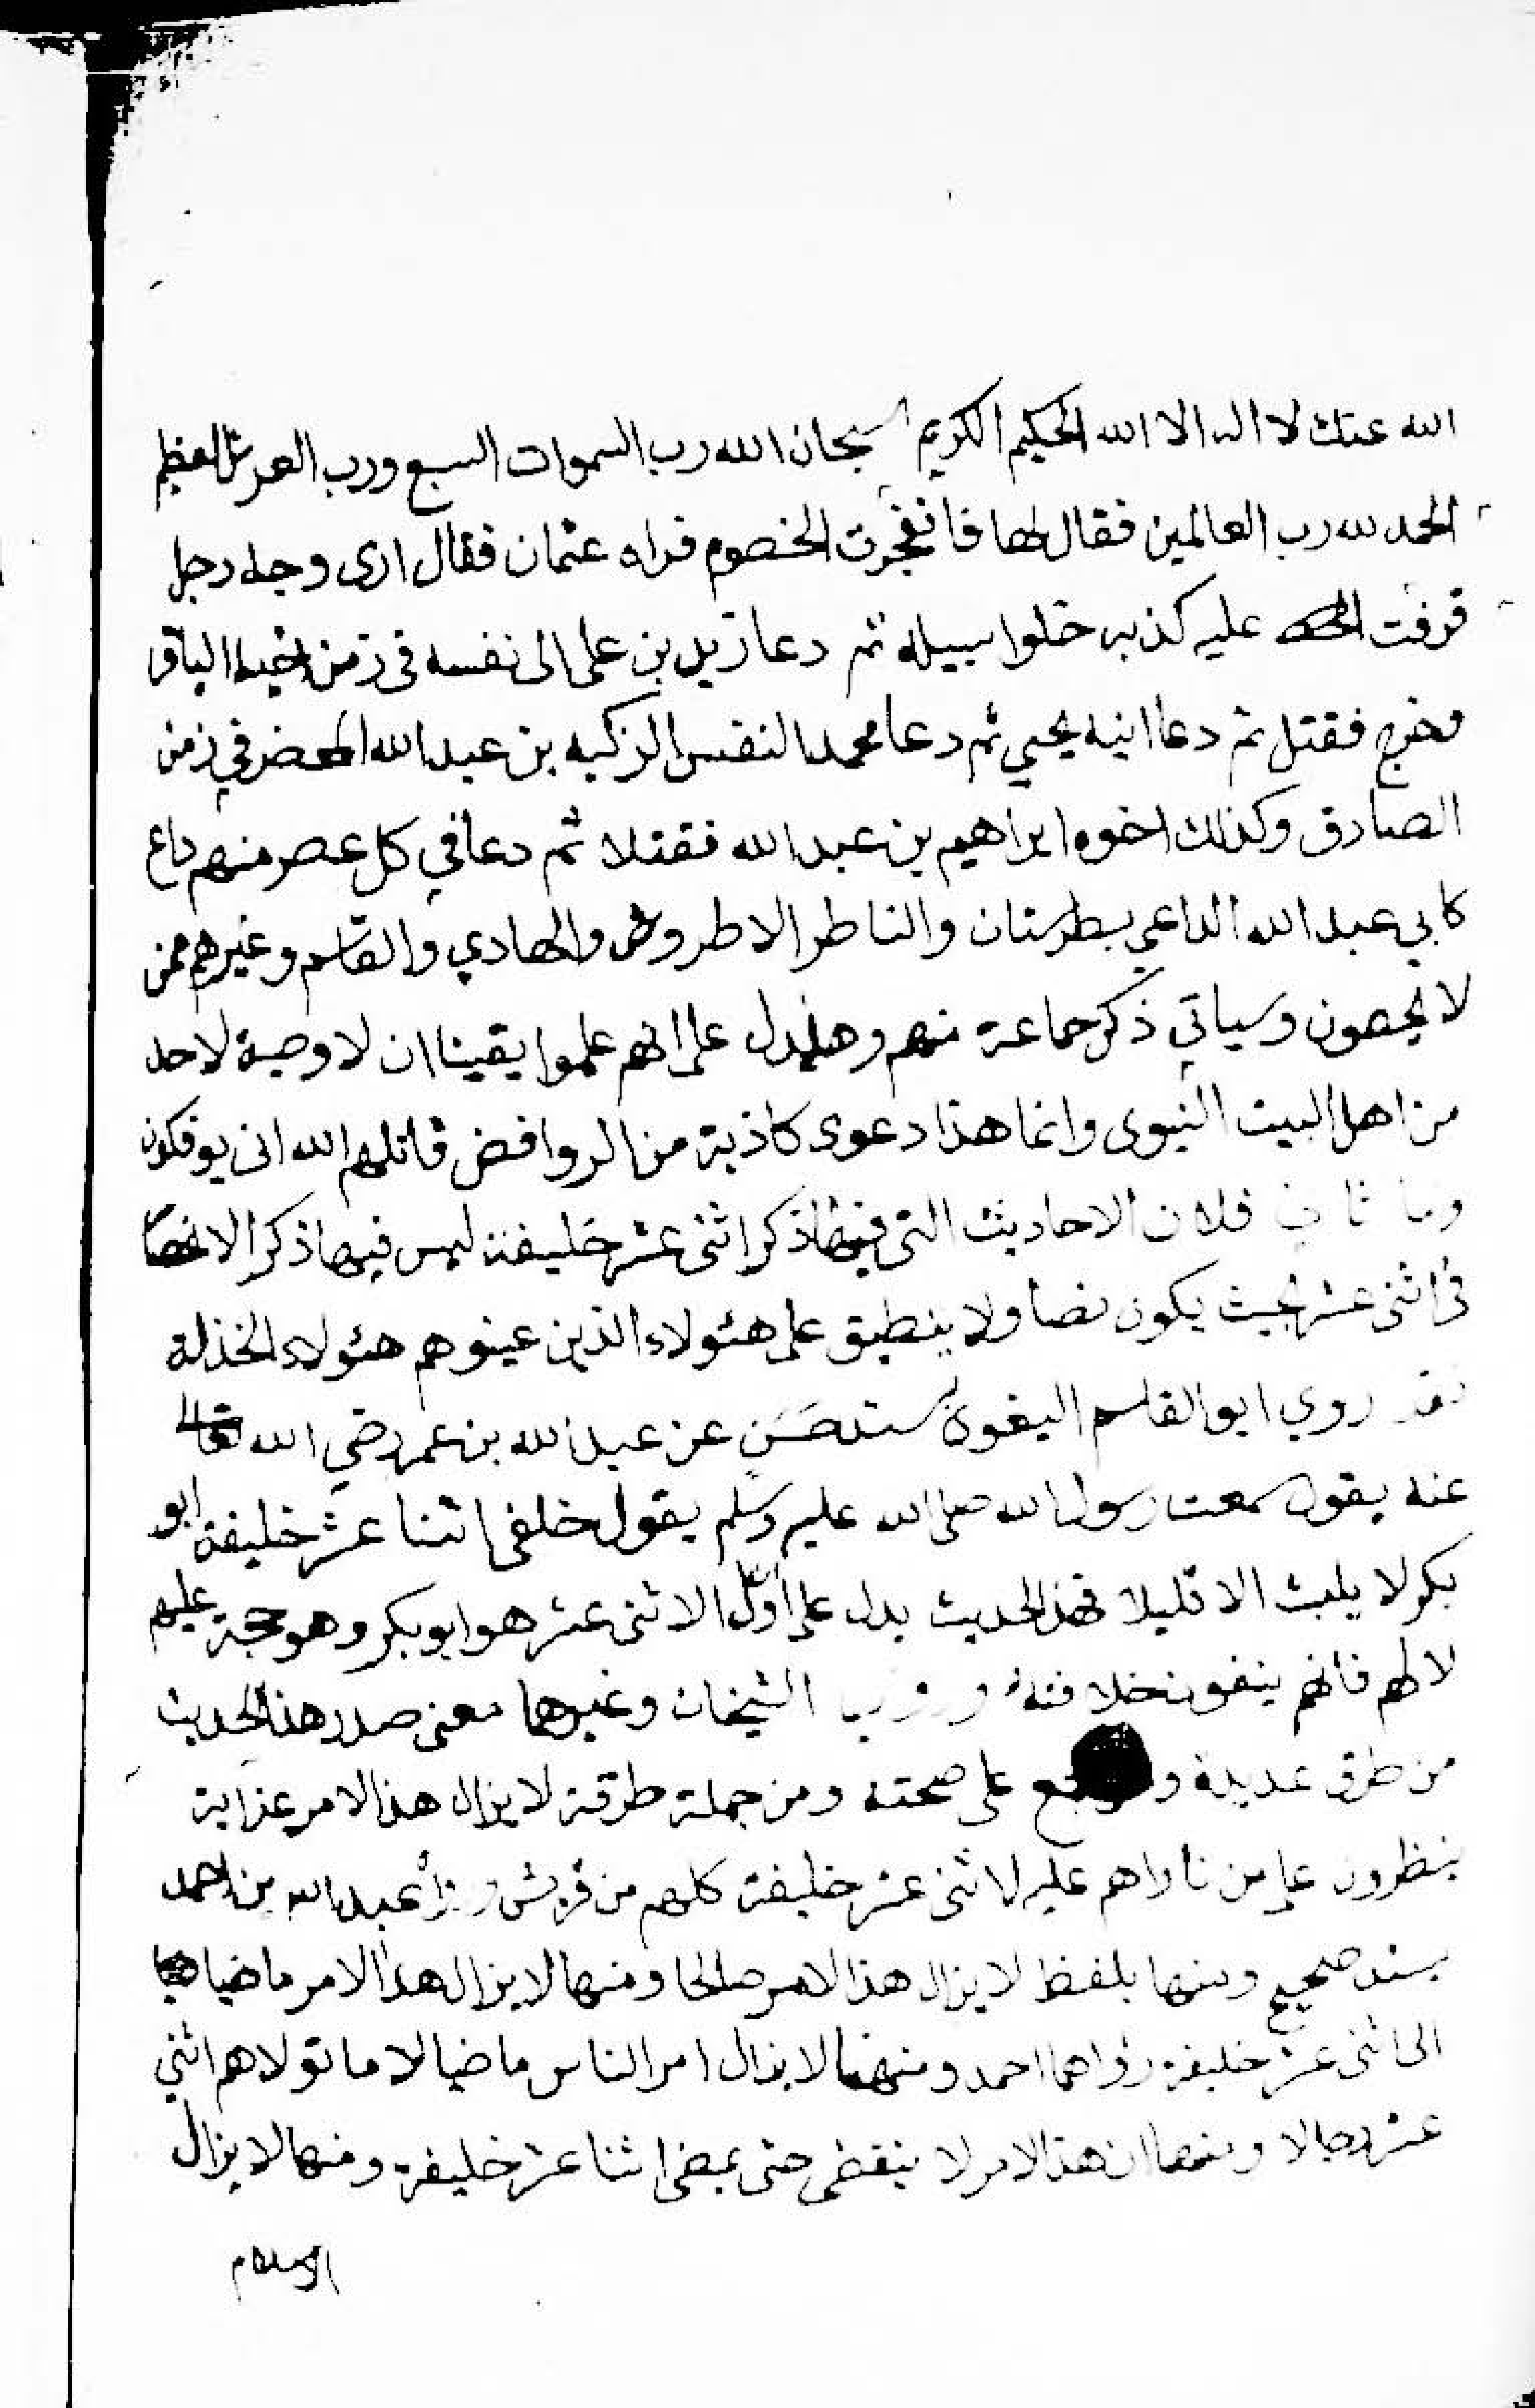 الله عنك لا اله الا الله الحكيم الكريم سبحان الله رب السموات السبع ورب العرش العظيم
الحمد لله رب العالمين فقال لها فانفجرت الخصوم فراه عثمان فقال ارى وجه رجل
قرفت عليه كذبه خلوا سبيله ثم دعا زيد بن على الى نفسه في زمن اخيه الباقر
وخرج فقتل ثم دعا ابنه يحيي ثم دعا محمد النفس الزكيه بن عبد الله المحض في زمن
الصادق وكذلك اخوه ابراهيم بن عبد الله فقتلا ثم دعا في كل عصر منهم داع
كابي عبد الله الداعي بطبرستان والناطر الاطروش والهادي والقاسم وغيرهم ممن
لا يحصون وسياتي ذكر جماعة منهم وهذا يدل على انهم علموا يقينا ان لا وصية لاحد
من اهل البيت النبوى وانما هذا دعوى كاذبة من الروافض قاتلهم الله انى يوفكون
فلان الاحاديث التى فيها ذكر اثنى عشر خليفة ليس فيها ذكر الانحصار
في اثنى عشر بحيث يكون نصا ولا ينطبق على هئولاء الذين عينوهم هئولاء الخذلة
فقد روي ابو القاسم البغوي بسند حَسَنٍ عن عبد الله بن عمر رضي الله تعالى
عنه يقول سمعت رسول الله صلى الله عليه وسلم يقول خلفى اثنا عشر خليفة ابو
بكر لا يلبث الا قليلا فهذ الحديث يدل على أوّل الاثنى عشر هو ابو بكر وهو حجة عليهم
لا لهم فانهم ينفون خلافته الشيخان وغيرهما معنى صدر هذا الحديث
من طرق عديدة على صحته ومن جملة طرقة لا يزال هذا الامر عزايزة
ينظرون على من ناواهم عليه لاثنى عشر خليفة كلهم من قريش عبد الله بن احمد
بسند صحيح ومنها بلفظ لا يزال هذا الامر صالحا ومنها لا يزال هذا الامر ماضيا
الى اثنى عشر خليفة رواهما احمد ومنها لا يزال امر الناس ماضيا لا ما تولاهم اثني
عشر رجالا ومنها ان هذا الامر لا ينقضى حتى يمضى اثنا عشر خليفة ومنها لا يزال
الاسلام